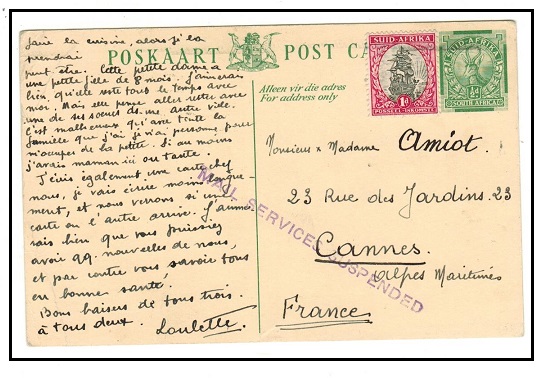 faire la cuisine, alors je la
prendrai
peut être. Cette petite dame a
une petite fille de 8 mois. J'aimerais
bien qu'elle reste tout le temps avec
moi. Mais elle pense aller rester avec
une de ses soeurs ds une autre ville.
C'est malheureux qu'avec toute la
famille que j'ai je n'ai personne pour
m'occuper de la petite. Si au moins
j'avais maman ici ou tante.
J'écris également une carte chez
nous, je vais écrire moins longue-
ment, et nous verrons si une
carte ou l'autre arrive. J'aime-
rais bien que vous puissiez
avoir qq. nouvelles de nous,
et par contre vous savoir tous
en bonne santé.
Bons baisers de tous trois.
à tous deux. Loulette.
POSKAART POST CA
Alleen vir die adres
For address only
SUID-AFRIKA
1D
POSSEEL-INKOMSTE
SUID-AFRIKA
½d
SOUTH AFRICA
Monsieur & Madame Amiot.
23 Rue des Jardins. 23
Cannes.
Alpes Maritimes
France
MAIL SERVICES SUSPENDED